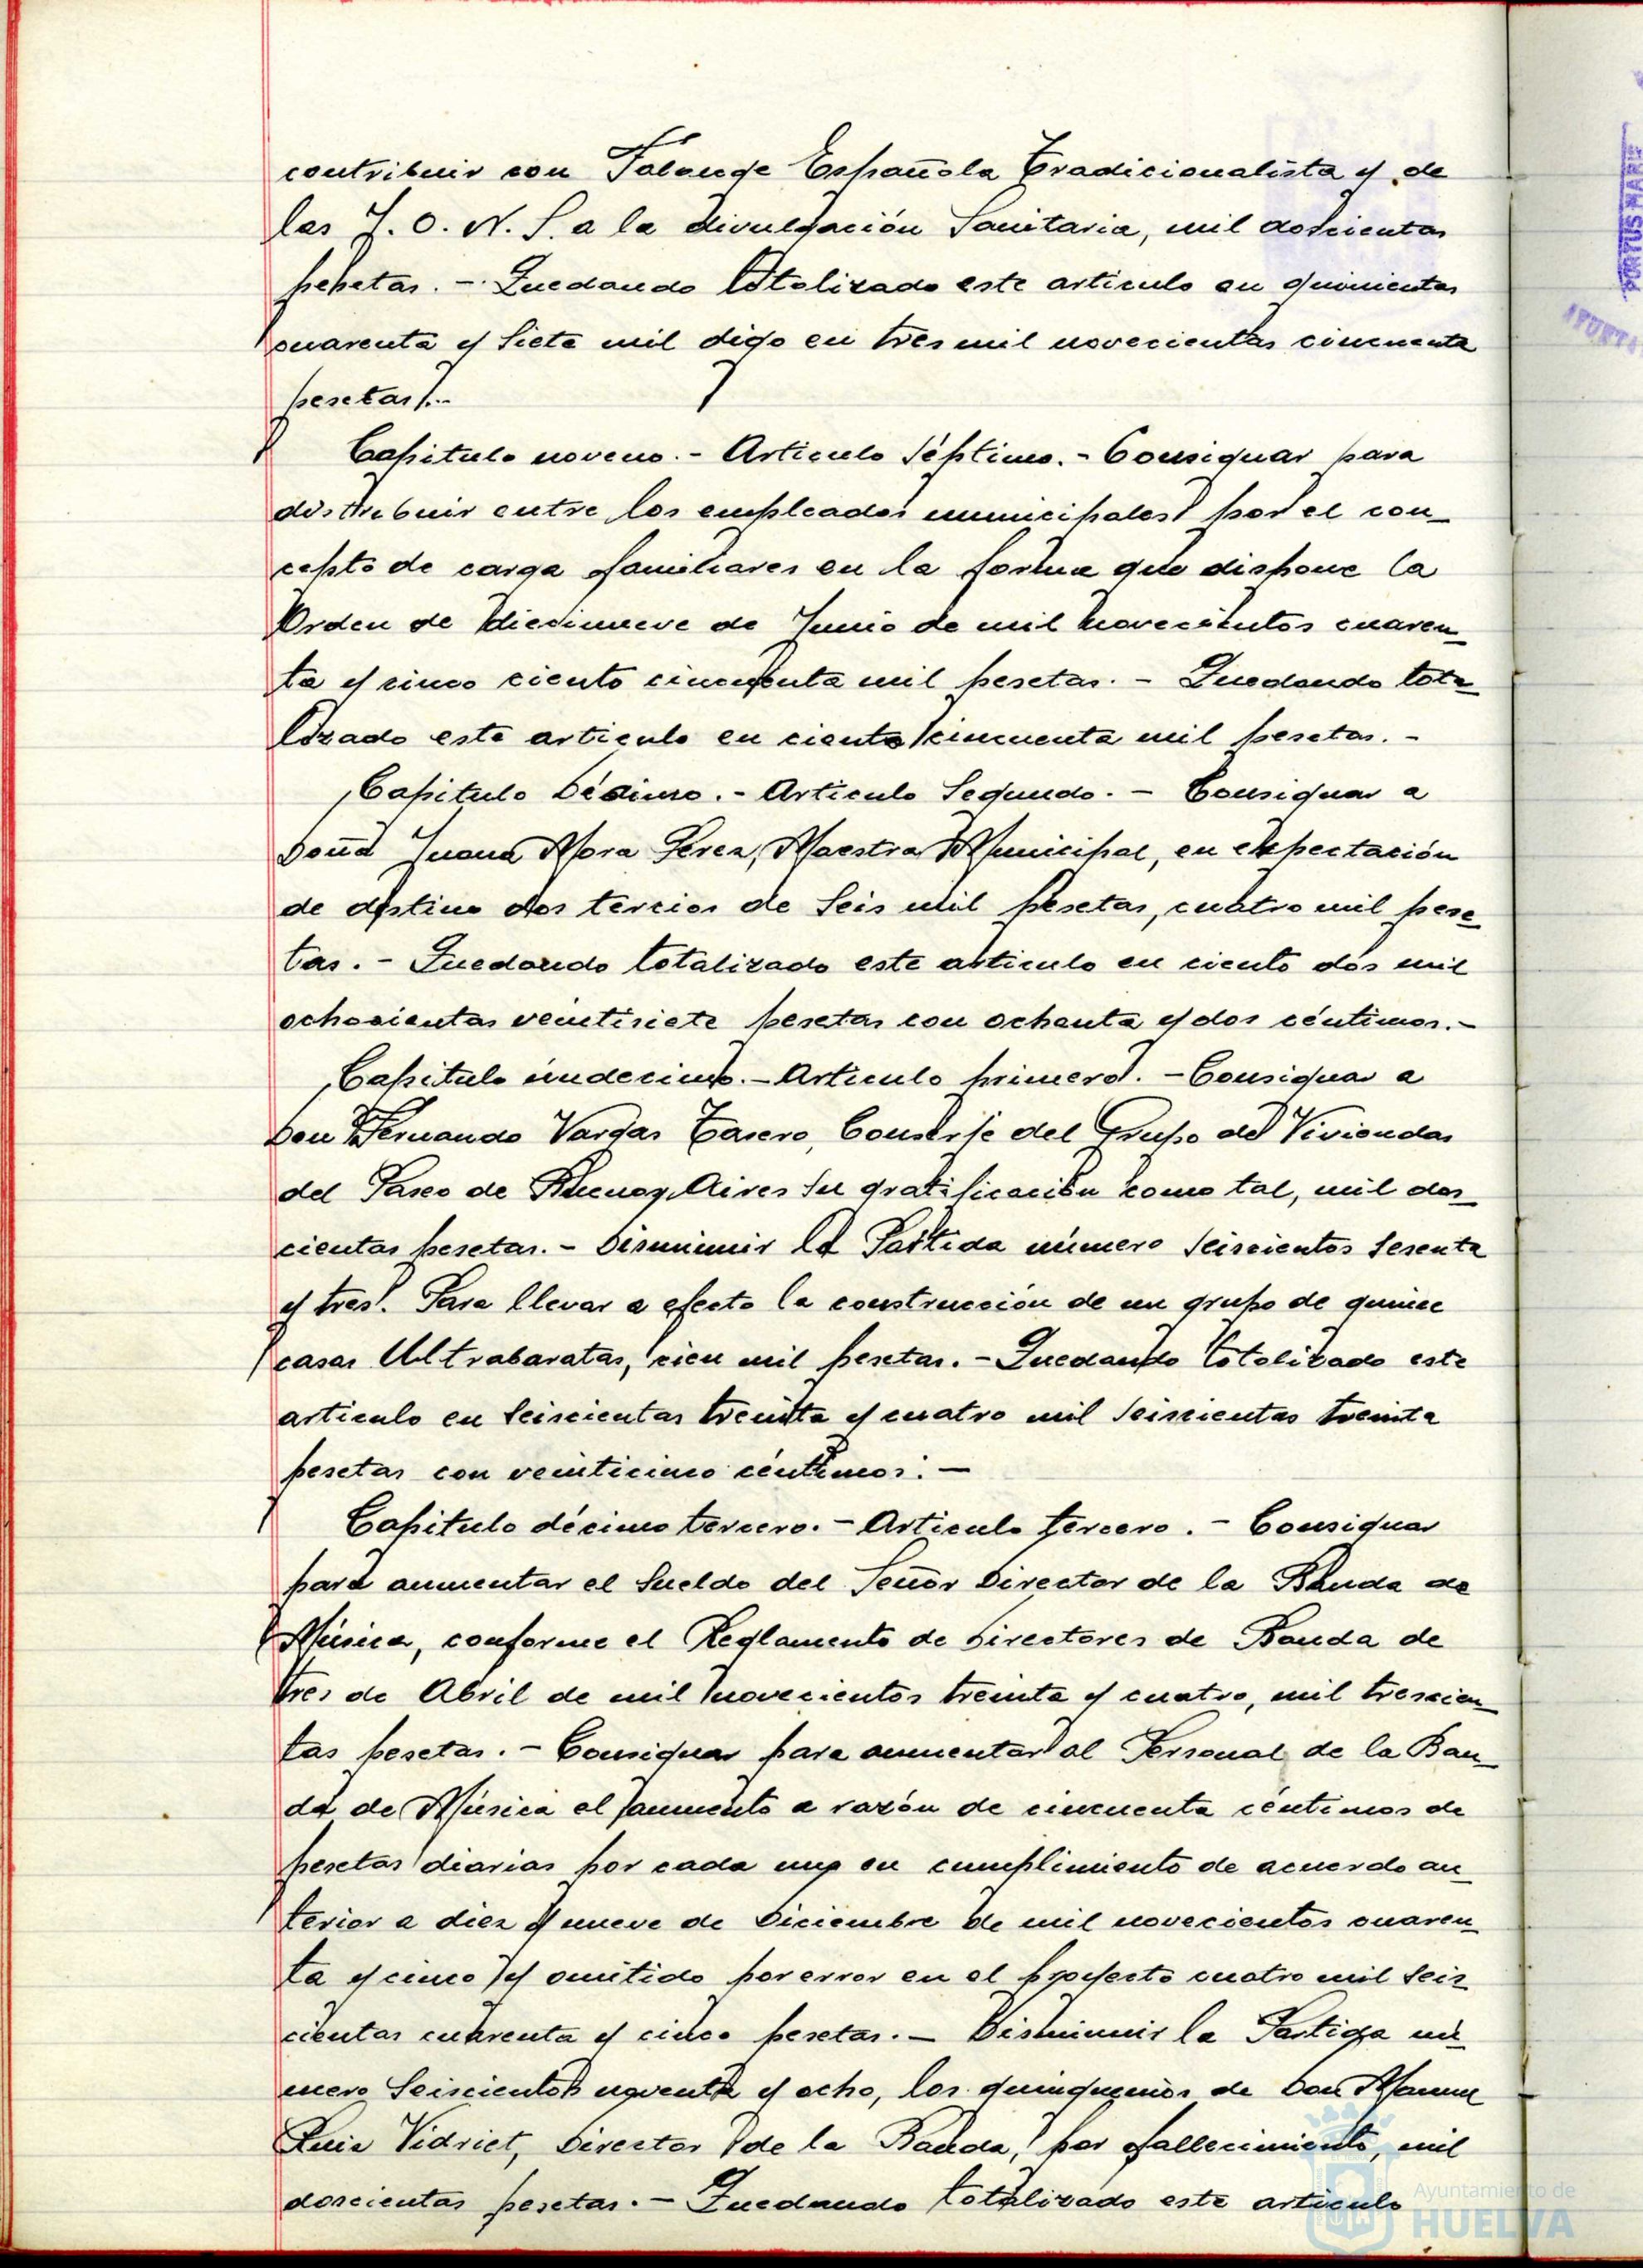 contribuir con Falange Española Tradicionalista y de
las J. O. N. S. a la divulgación Sanitaria, mil doscientas
pesetas. - Quedando totalizado este articulo en quinientas
cuarenta y siete mil digo en tres mil novecientas cincuenta
pesetas/..-
Capitulo noveno. - Articulo Séptimo. - Consignar para
distribuir entre los empleados municipales por el con_
cepto de carga familiares en la forma que dispone la
Orden de diecinueve de Junio de mil novecientos cuaren_
ta y cinco ciento cincuenta mil pesetas. - Quedando tota_
lizado este articulo en ciento cincuenta mil pesetas. -
Capitulo Décimo. - Articulo Segundo. - Consignar a
Doña Juana Mora Perez, Maestra Municipal, en expectación
de destino dos tercios de Seis mil pesetas, cuatro mil pese_
tas. - Quedando totalizado este articulo en ciento dos mil
ochocientas veintisiete pesetas con ochenta y dos céntimos. -
Capitulo úndecimo. - Articulo primero. - Consignar a
Don Fernando Vargas Casero, Conserje del Grupo de Viviendas
del Paseo de Buenos Aires su gratificación como tal, mil dos_
cientas pesetas. - Disminuir la Partida número Seiscientos Sesenta
y tres. Para llevar a efecto la construcción de un grupo de quince
casas Ultrabaratas, cien mil pesetas. - Quedando totalizado este
articulo en Seiscientas treinta y cuatro mil Seiscientas treinta
pesetas con veinticinco céntimos. -
Capitulo décimo tercero. - Articulo tercero. - Consignar
para aumentar el Sueldo del Señor Director de la Banda de
Música, conforme el Reglamento de Directores de Banda de
tres de Abril de mil novecientos treinta y cuatro, mil trescien_
tas pesetas. - Consignar para aumentar al Personal de la Ban_
da de Música el aumento a razón de cincuenta céntimos de
pesetas diarias por cada uno en cumplimiento de acuerdo an_
terior a diez y nueve de Diciembre de mil novecientos cuaren_
ta y cinco y omitido por error en el proyecto cuatro mil Seis_
cientas cuarenta y cinco pesetas. - Disminuir la Partida nú_
mero Seiscientos noventa y ocho, los quinquenios de Don Manuel
Ruiz Vidriet, Director de la Banda, por fallecimiento, mil
doscientas pesetas. - Quedando totalizado este articulo
Ayuntamiento de
HUELVA